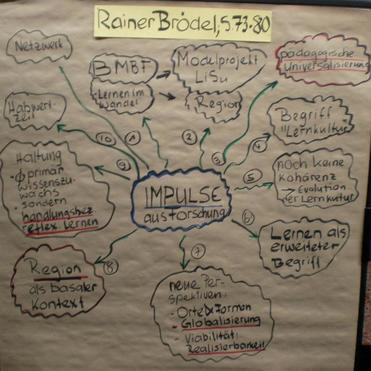 Rainer Brödel, S. 73-80
Netzwerk
BMBF
Lernen im
Wandel
Modelprojekt
LiSu
Region
pädagogische
Universalisierung
Begriff
"Lernkultur"
noch keine
Kohärenz
→ Evolution
der Lernkultur
Lernen als
erweiteter
Begriff
neue Per-
spektiven
- Orte & Formen
- Globalisierung
- Viabilität:
Realisierbarkeit
Region
als basaler
Kontext
Haltung
primär
wissenszu-
wachs
sondern
handlungsbez
reflex Lernen
Halbwert-
Zeit
IMPULSE
aus Forschung
1
2
3
4
5
6
7
8
9
10